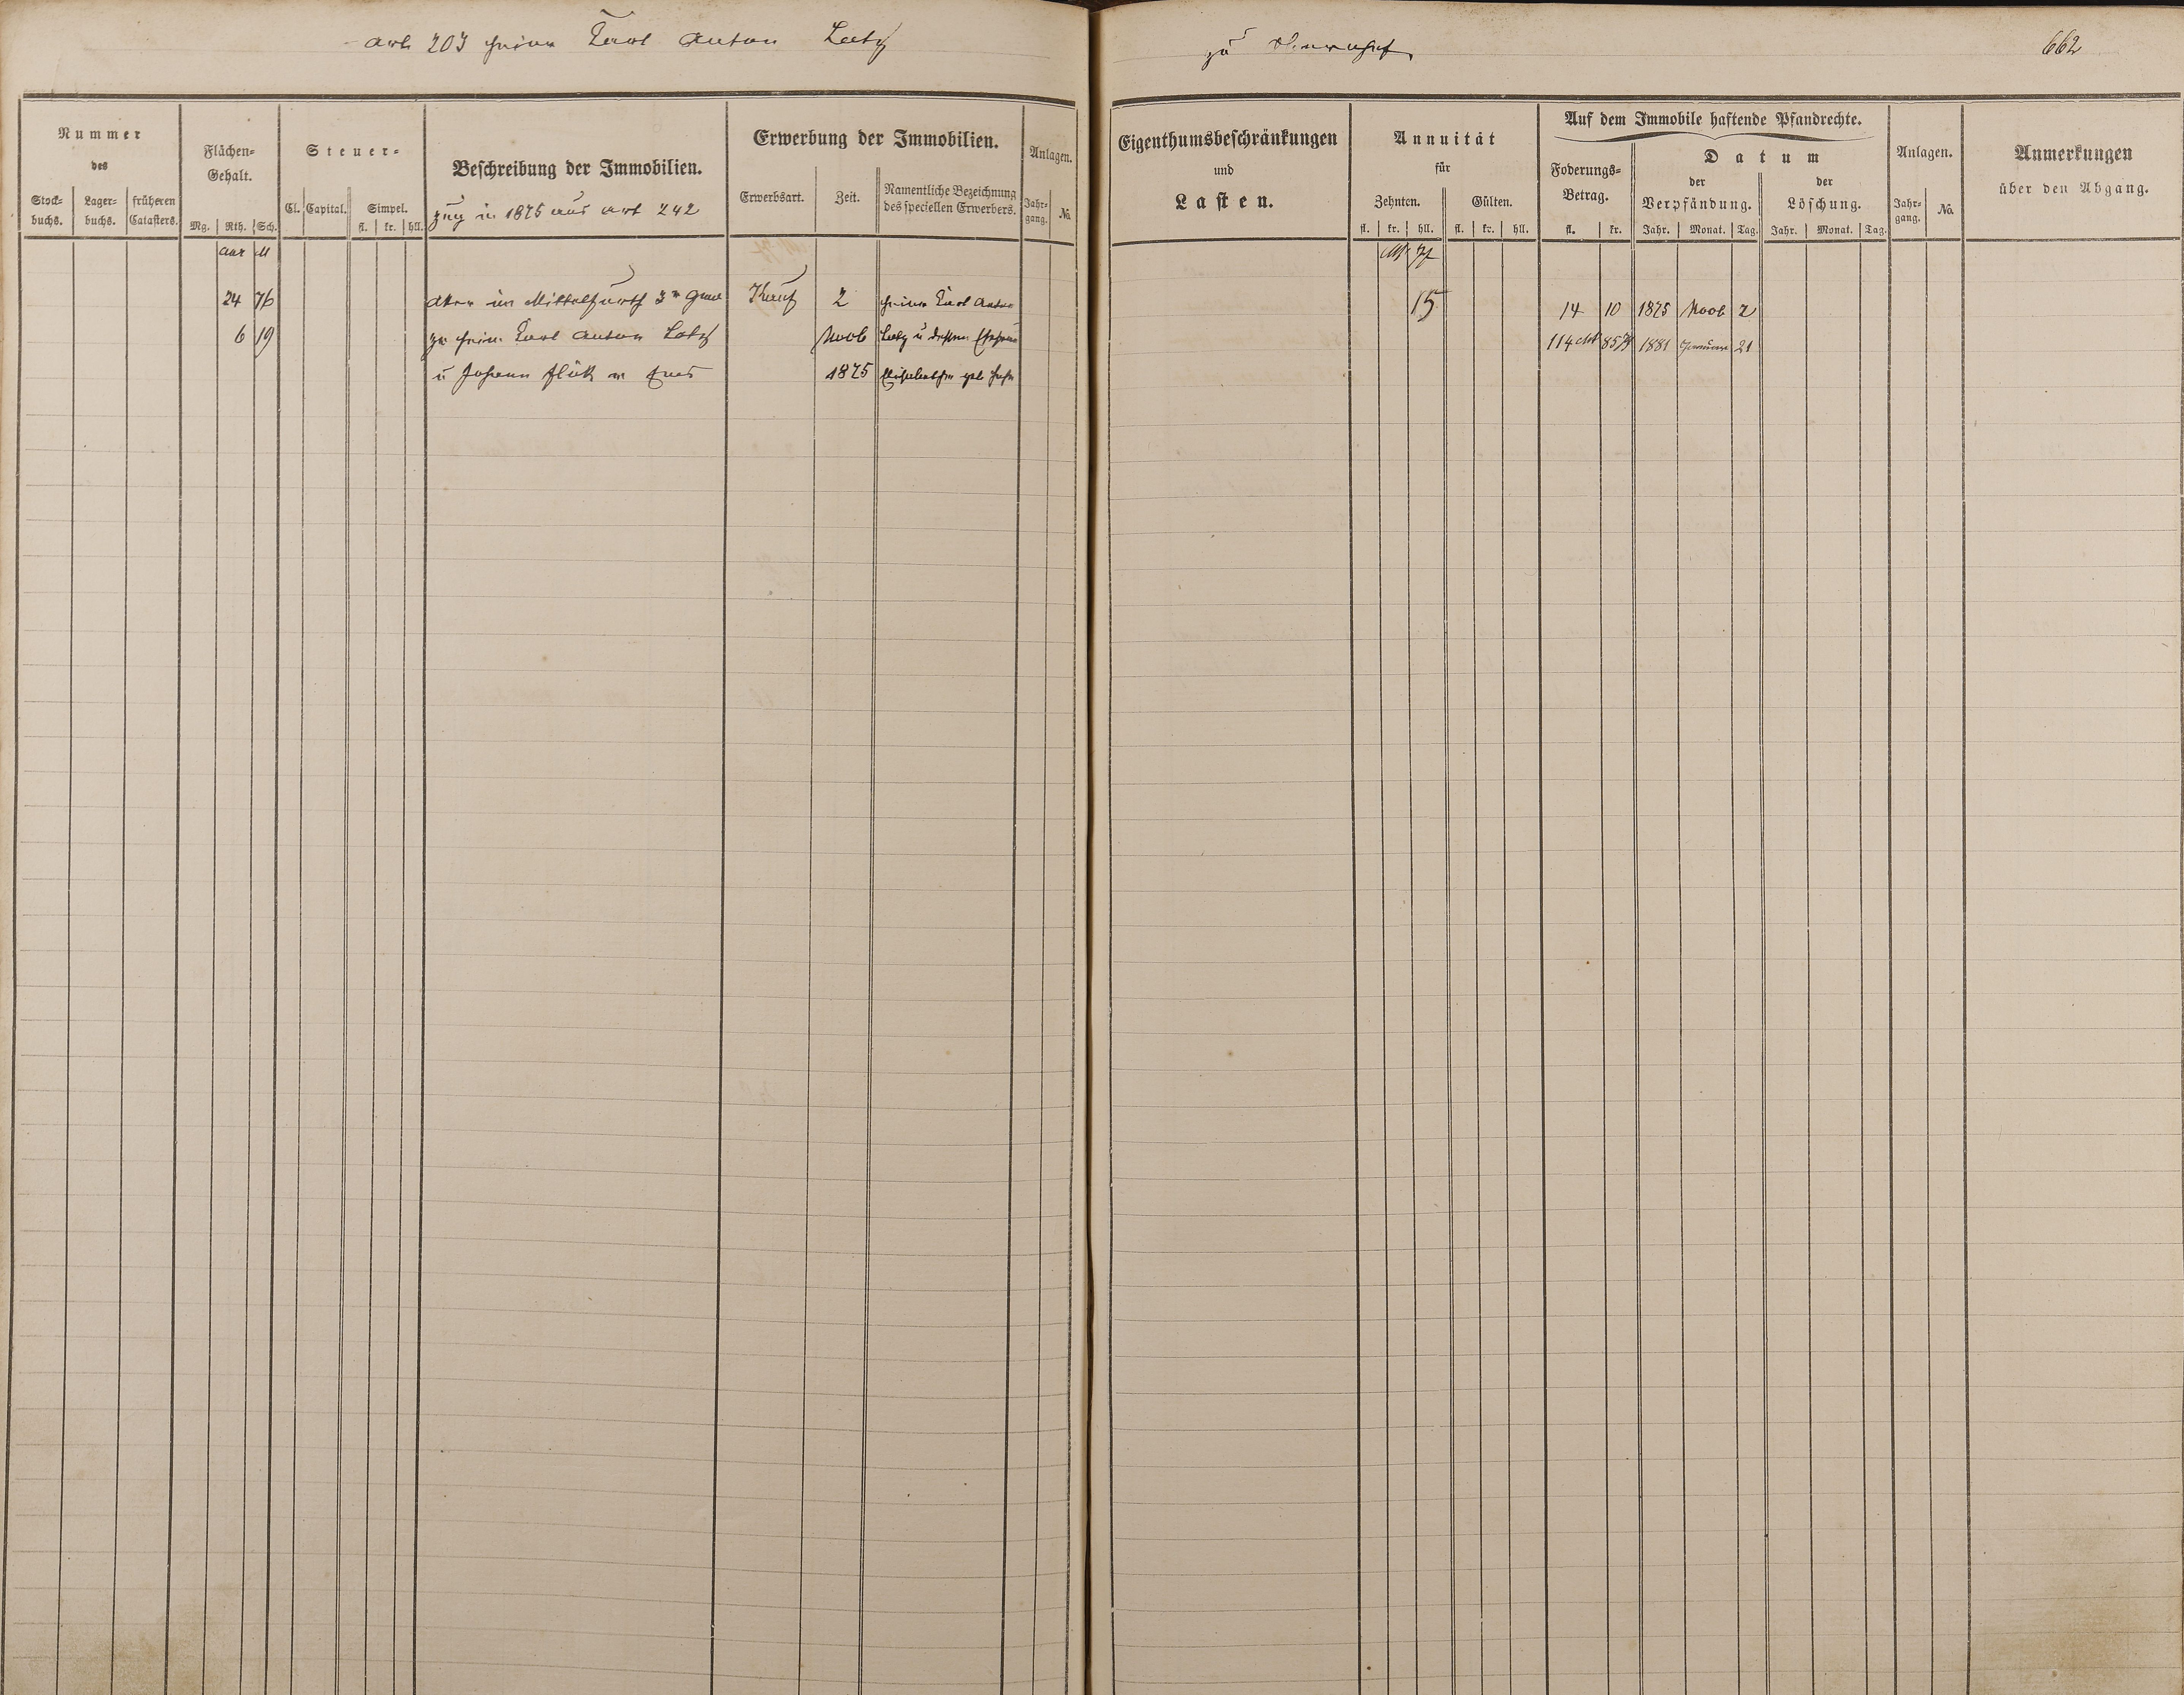 art 203 Heinr Karl Anton Lotz
zu
662
Nummer
des
Stock-
buchs.
Lager-
buchs.
früheren
Catasters.
Flächen-
Gehalt.
Mg. Rth. Sch.
Steuer-
Cl. Capital. Simpel.
fl. kr. hll.
Beschreibung der Immobilien.
zug in 1875 aus art 242
Erwerbung der Immobilien.
Erwerbsart. Zeit.
Namentliche Bezeichnung
des speciellen Erwerbers.
Anlagen.
Jahr-
gang. No.
Eigenthumsbeschränkungen
und
Lasten.
Annuität
für
Zehnten. Gülten.
fl. kr. hll. fl. kr. hll.
Auf dem Immobile haftende Pfandrechte.
Foderungs-
Betrag.
fl. kr.
Datum
der
Verpfändung.
der
Löschung.
Jahr. Monat. Tag. Jahr. Monat. Tag.
Anlagen.
Jahr-
gang. No.
Anmerkungen
über den Abgang.
aar M
24 76 Aker im 3r Kauf 2 Heinr Karl Anton 15 14 10 1875 Novb 2
6 19 zw Heinr Karl Anton Lotz Novb Lotz u dessen Ehefrau 114 85 1881 Januar 21
u Johann 1875 Elisabetha geb